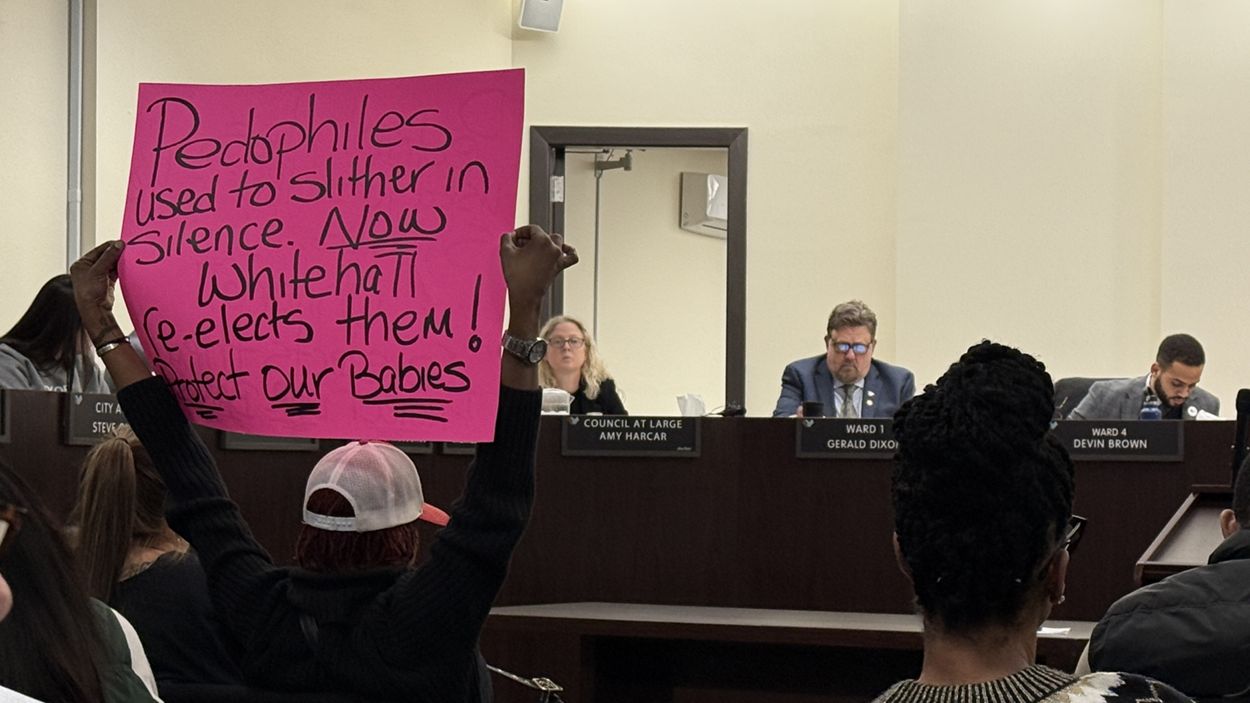 Pedophiles
used to slither in
silence. NOW
Whitehall
re-elects them!
Protect our Babies
CITY A
STEVE
COUNCIL AT LARGE
AMY HARCAR
WARD 1
GERALD DIXO
WARD 4
DEVIN BROWN